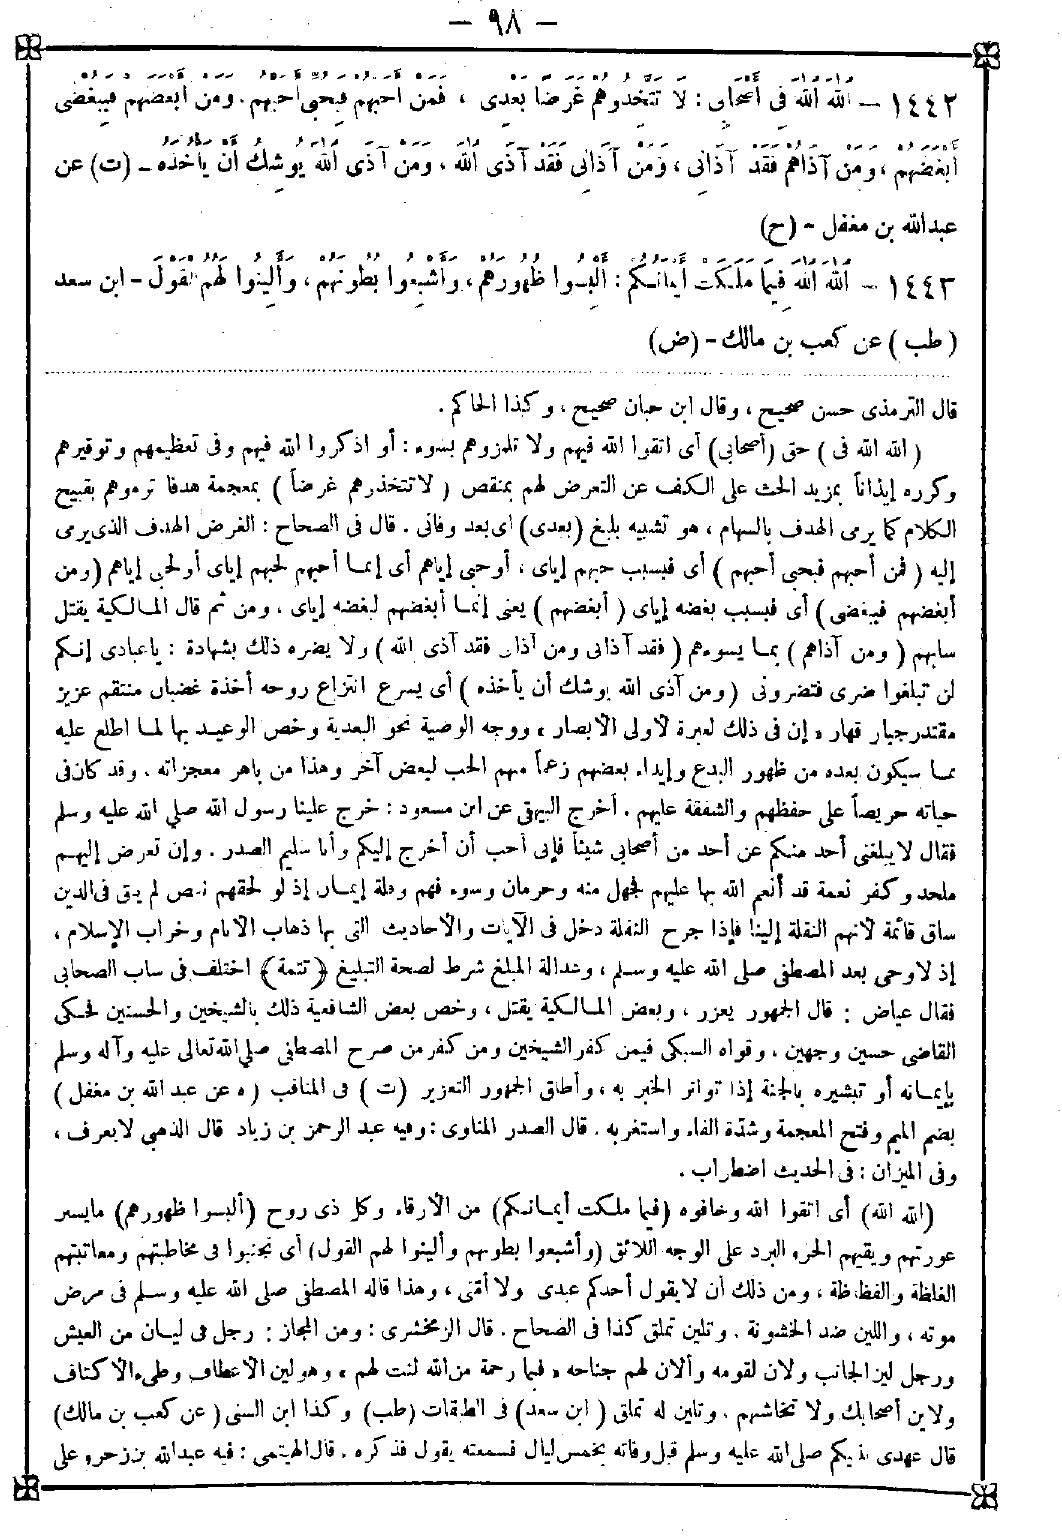 — ٩٨ —
١٤٤٢ — اللهَ اللهَ فِي أَصْحَابِي : لَا تَتَّخِذُوهُمْ غَرَضًا بَعْدِي ، فَمَنْ أَحَبَّهُمْ فَبِحُبِّي أَحَبَّهُمْ . وَمَنْ أَبْغَضَهُمْ فَبِبُغْضِي
أَبْغَضَهُمْ ، وَمَنْ آذَاهُمْ فَقَدْ آذَانِي ، وَمَنْ آذَانِي فَقَدْ آذَى اللهَ ، وَمَنْ آذَى اللهَ يُوشِكُ أَنْ يَأْخُذَهُ - (ت) عن
عبدالله بن مغفل - (ح)
١٤٤٣ — اللهَ اللهَ فِيمَا مَلَكَتْ أَيْمَانُكُمْ : أَلْبِسُوا ظُهُورَهُمْ ، وَأَشْبِعُوا بُطُونَهُمْ ، وَأَلِينُوا لَهُمُ الْقَوْلَ - ابن سعد
( طب ) عن كعب بن مالك - (ض)
قال الترمذى حسن صحيح ، وقال ابن حبان صحيح ، وكذا الحاكم .
( الله الله فى ) حق (أصحابي) أى اتقوا الله فيهم ولا تلمزوهم بسوء : أو اذكروا الله فيهم وفى تعظيمهم وتوقيرهم
وكرره إيذاناً بمزيد الحث على الكف عن التعرض لهم بمنقص ( لا تتخذرهم غرضاً ) بمعجمة هدفا ترموهم بقبيح
الكلام كما يرمى الهدف بالسهام ، هو تشبيه بليغ (بعدى) اى بعد وفانى . قال فى الصحاح : الغرض الهدف الذى يرمى
إليه ( فمن أحبهم فبحبى أحبهم ) أى فبسبب حبهم إياى ، أوحبى إياهم أى إنما أحبهم لحبهم إياى أو لحبى إياهم (ومن
أبغضهم فببغضى ) أى فبسبب بغضه إياى ( أبغضهم ) يعنى إنما أبغضهم لبغضه إياى . ومن ثم قال المالكية يقتل
سابهم ( ومن آذاهم ) بما يسوءهم ( فقد آذانى ومن آذانى فقد آذى الله ) ولا يضره ذلك بشهادة : ياعبادى إنكم
لن تبلغوا ضرى فتضرونى ( ومن آذى الله يوشك أن يأخذه ) أى يسرع انتزاع روحه أخذة غضبان منتقم عزيز
مقتدر جبار قهار « إن فى ذلك لعبرة لأولى الأبصار » ووجه الوصية نحو البعدية وخص الوعيد بها لما اطلع عليه
بما سيكون بعده من ظهور البدع وإيذاء بعضهم زعماً منهم الحب لبعض آخر وهذا من باهر معجزاته . وقد كان فى
حياته حريصاً على حفظهم والشفقة عليهم . أخرج البيهقى عن ابن مسعود : خرج علينا رسول الله صلى الله عليه وسلم
فقال لا يبلغنى أحد منكم عن أحد من أصحابى شيئاً فإنى أحب أن أخرج إليكم وأنا سليم الصدر . وإن تعرض إليهم
ملحد وكفر نعمة قد أنعم الله بها عليهم فجهل منه وحرمان وسوء فهم وقلة إيمان إذ لو لحقهم نقص لم يبق فى الدين
ساق قائمة لأنهم النقلة إلينا فإذا جرح النقلة دخل فى الآيات والأحاديث التى بها ذهاب الأنام وخراب الإسلام ،
إذ لا وحى بعد المصطفى صلى الله عليه وسلم ، وعدالة المبلغ شرط لصحة التبليغ (تتمة) اختلف فى ساب الصحابى
فقال عياض : قال الجمهور يعزر ، وبعض المالكية يقتل ، وخص بعض الشافعية ذلك بالشيخين والحسنين فحكى
القاضى حسين وجهين ، وقواه السبكى فيمن كفر الشيخين ومن كفر من صرح المصطفى صلى الله تعالى عليه وآله وسلم
بإيمانه أو تبشيره بالجنة إذا تواتر الخبر به ، وأطلق الجمهور التعزير (ت ) فى المناقب ( ه عن عبد الله بن مغفل )
بضم الميم وفتح المعجمة وشدة الفاء واستغربه . قال الصدر المناوى : وفيه عبد الرحمن بن زياد قال الذهبى لا يعرف ،
وفى الميزان : فى الحديث اضطراب .
(الله الله) أى اتقوا الله وخافوه (فيما ملكت أيمانكم) من الأرقاء وكل ذى روح (ألبسوا ظهورهم) مايستر
عورتهم ويقيهم الحر والبرد على الوجه اللائق (وأشبعوا بطونهم وألينوا لهم القول) أى تجنبوا فى مخاطبتهم ومعاتبتهم
الغلظة والفظاظة ، ومن ذلك أن لا يقول أحدكم عبدى ولا أمتى ، وهذا قاله المصطفى صلى الله عليه وسلم فى مرض
موته ، واللين ضد الخشونة . وتلين تملق كذا فى الصحاح . قال الزمخشرى : ومن المجاز : رجل فى ليان من العيش
ورجل لين الجانب ولان لقومه وألان لهم جناحه « فبما رحمة من الله لنت لهم » وهو لين الأعطاف وطىء الأكتاف
ولاين أصحابك ولا تخاشنهم . وتلين له تملق ( ابن سعد) فى الطبقات (طب) وكذا ابن السنى ( عن كعب بن مالك)
قال عهدى بنبيكم صلى الله عليه وسلم قبل وفاته بخمس ليال فسمعته يقول فذكره . قال الهيتمى : فيه عبدالله بن زحر وعلى